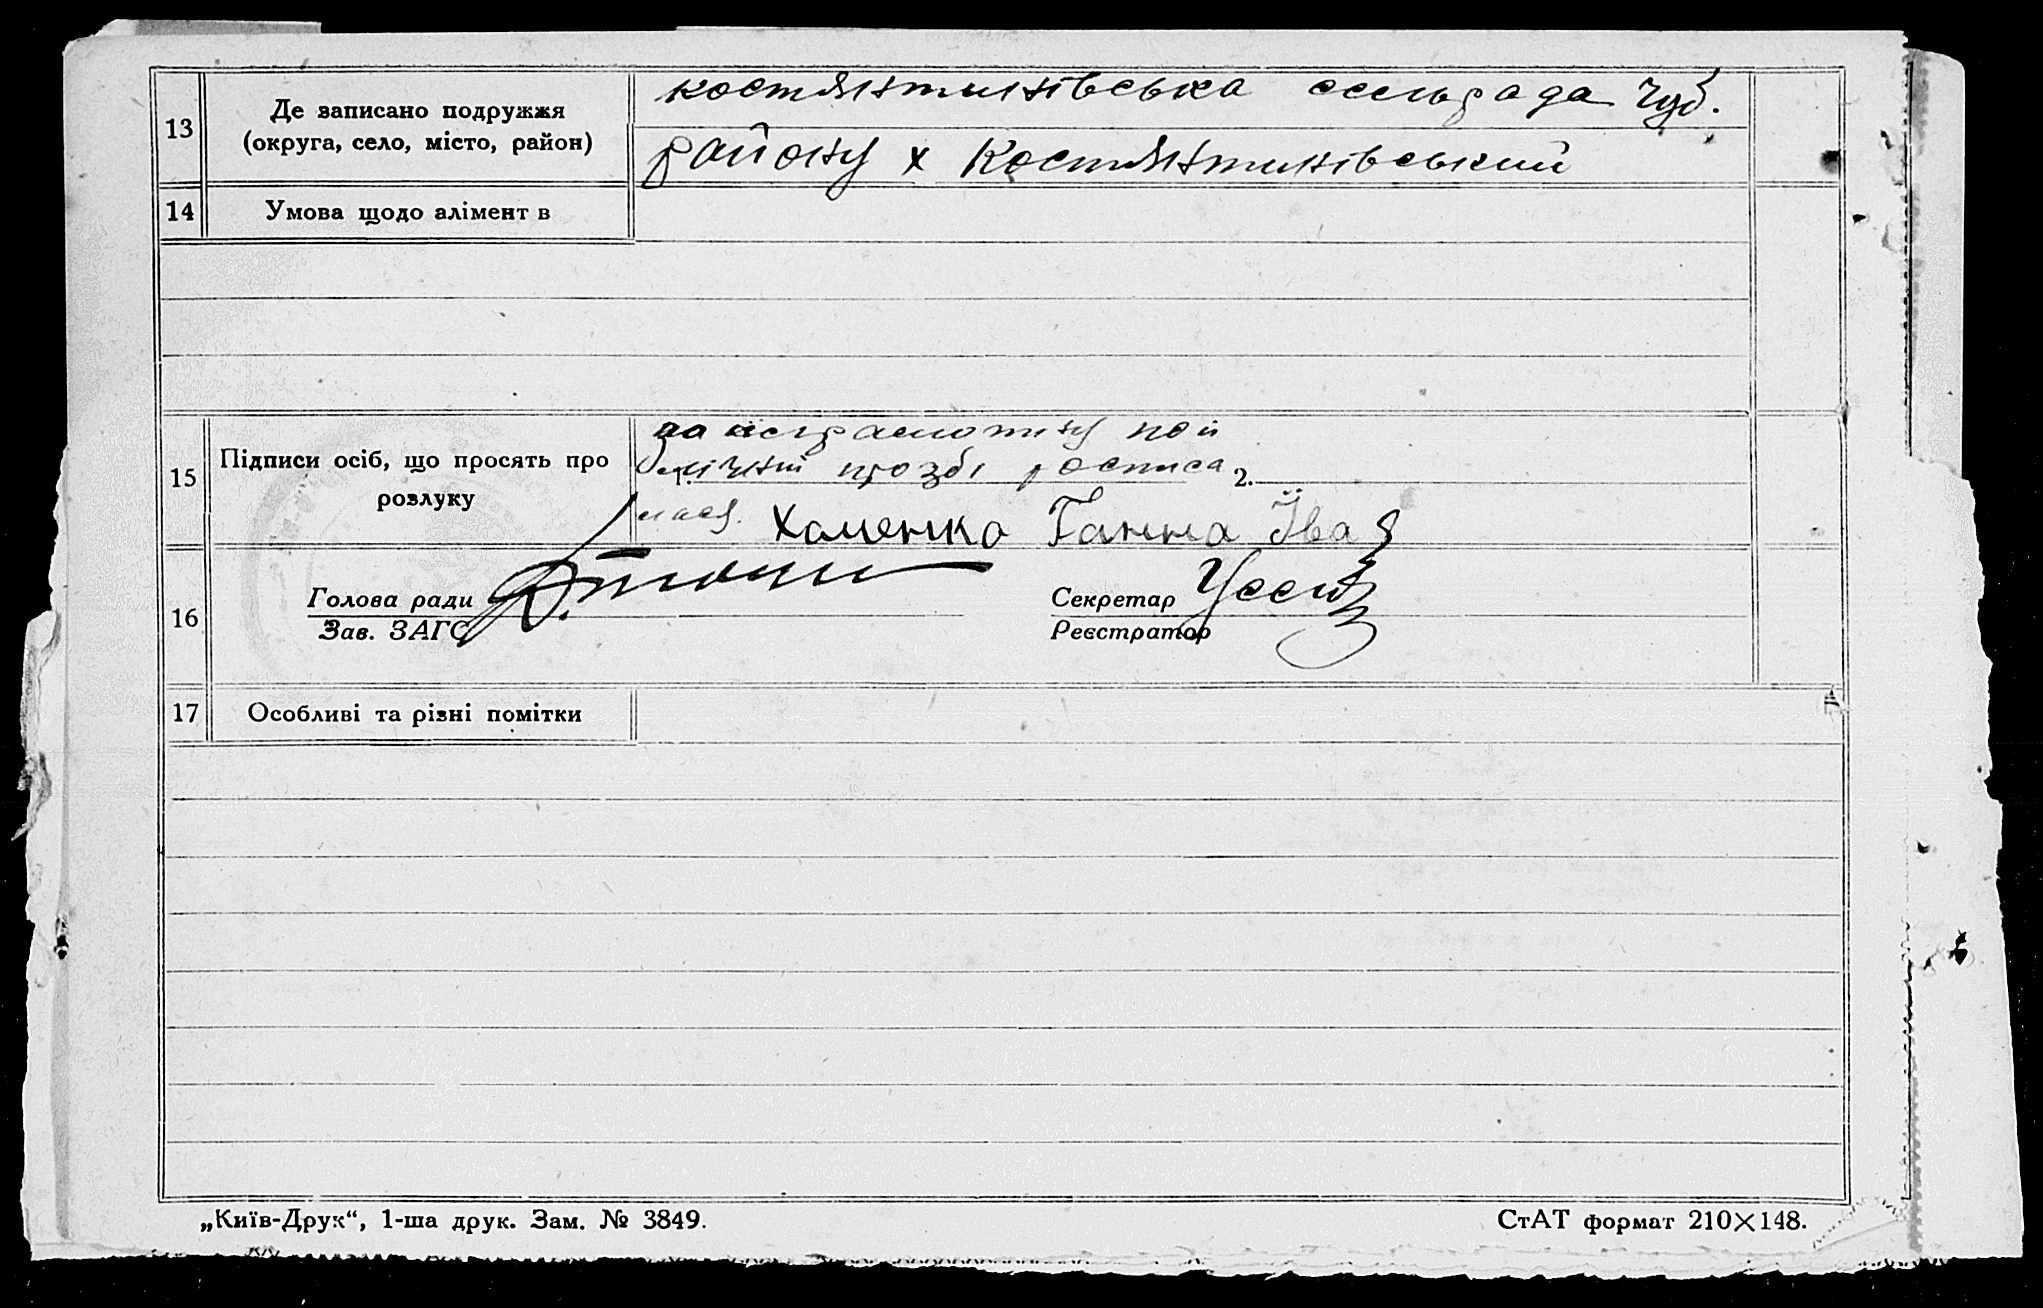 13 Де записано подружжя (округа, село, місто, район)
Костянтинівська сельрада Чуб.
району х Костянтинівський
14 Умова щодо алімент в
15 Підписи осіб, що просять про розлуку
неграмотну
прозбі росписа 2.
Хоменко Ганна Іва
16 Голова ради
Зав. ЗАГС
Секретар
Реєстратор
17 Особливі та різні помітки
„Київ-Друк“, 1-ша друк. Зам. № 3849.
СтАТ формат 210×148.